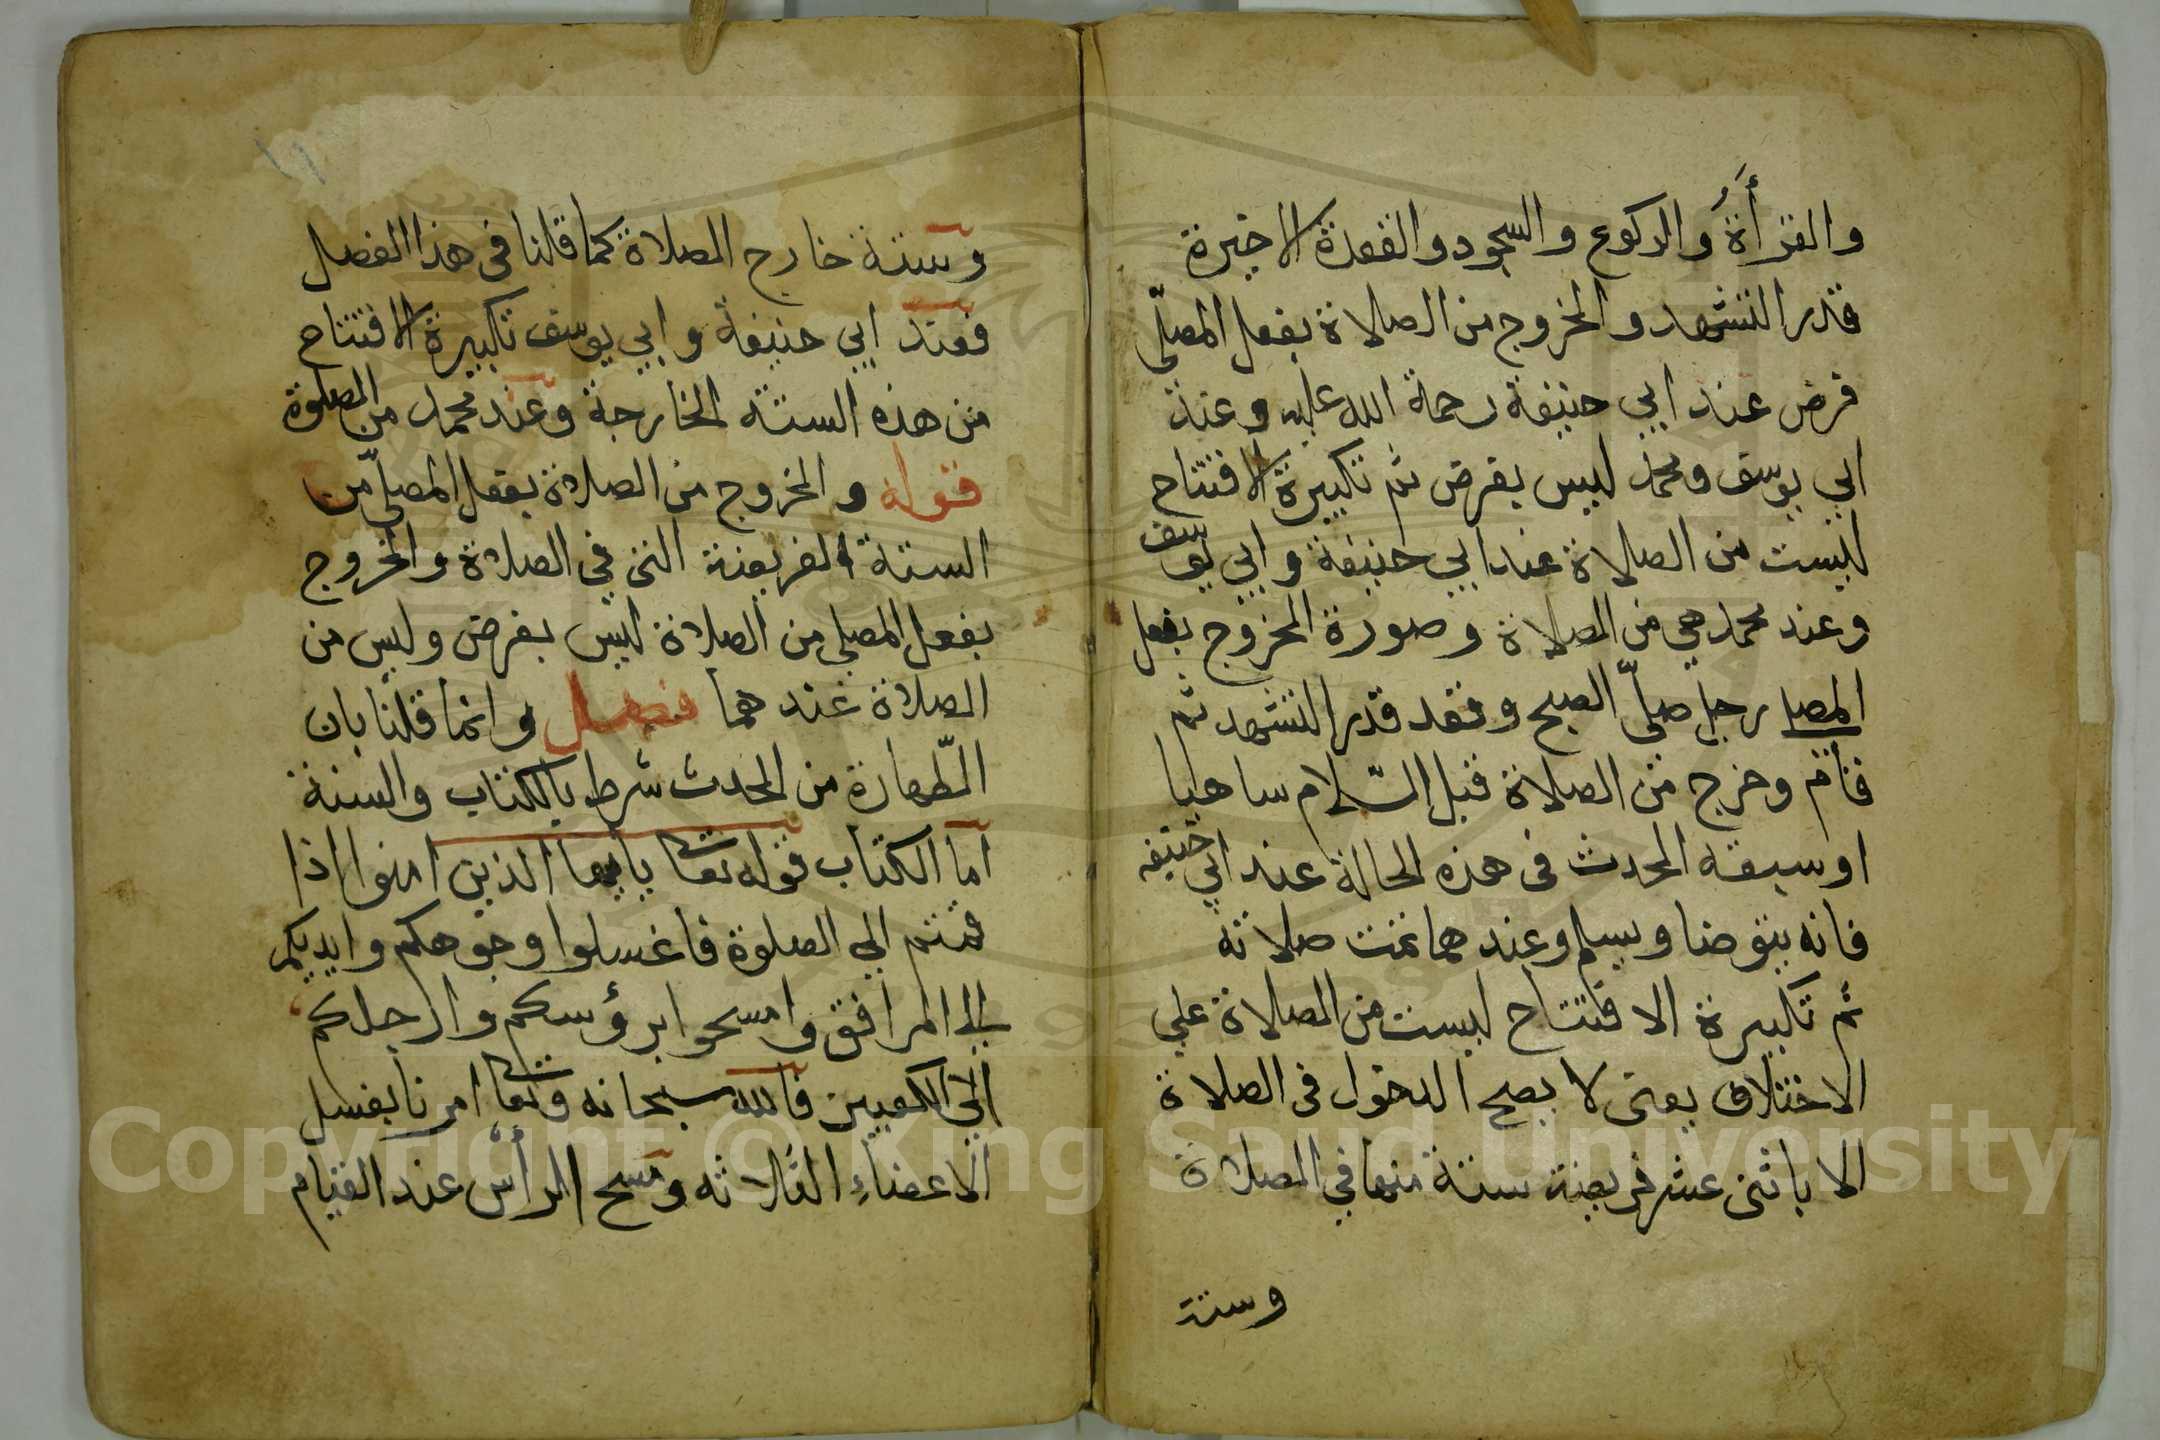 والقرأةُ والركوع والسجود والقعدة الاخيرة
قدر التشهد والخروج من الصلاة بفعل المصلّى
فرض عند ابي حنيفة رحمة الله عليه وعند
ابي يوسف ومحمد ليس بفرض ثم تكبيرة الافتتاح
ليست من الصلاة عند ابي حنيفة وابي يوسف
وعند محمد هي من الصلاة وصورة الخروج بفعل
المصلى رجل صلّى الصبح وقعد قدر التشهد ثم
قام وخرج من الصلاة قبل السّلام ساهيا
او سبقه الحدث فى هذه الحالة عند ابي حنيفه
فانه يتوضا ويسلم وعند هما تمت صلاته
ثم تكبيرة الافتتاح ليست من الصلاة علي
الاختلاف يعنى لا يصح الدخول فى الصلاة
الا باثنى عشر فريضة ستة منها في الصلاة
وستة
١١
وستة خارج الصلاة كما قلنا فى هذا الفصل
فعند ابي حنيفة وابي يوسف تكبيرة الافتتاح
من هذه الستة الخارجة وعند محمد من الصلوة
قوله والخروج من الصلاة بفعل المصلّى من
الستة الفريضة التى في الصلاة والخروج
بفعل المصلى من الصلاة ليس بفرض وليس من
الصلاة عند هما فصل وانما قلنا بان
الطّهارة من الحدث شرط بالكتاب والسنة
اما الكتاب قوله تعا يايها الذين امنوا اذا
قمتم الى الصلوة فاغسلوا وجوهكم وايديكم
الى المرافق وامسحوا برؤسكم وارجلكم
الى الكعبين فالله سبحانه وتعا امرنا بغسل
الاعضاء الثلاثه ومسح الرأس عند القيام
Copyright © King Saud University